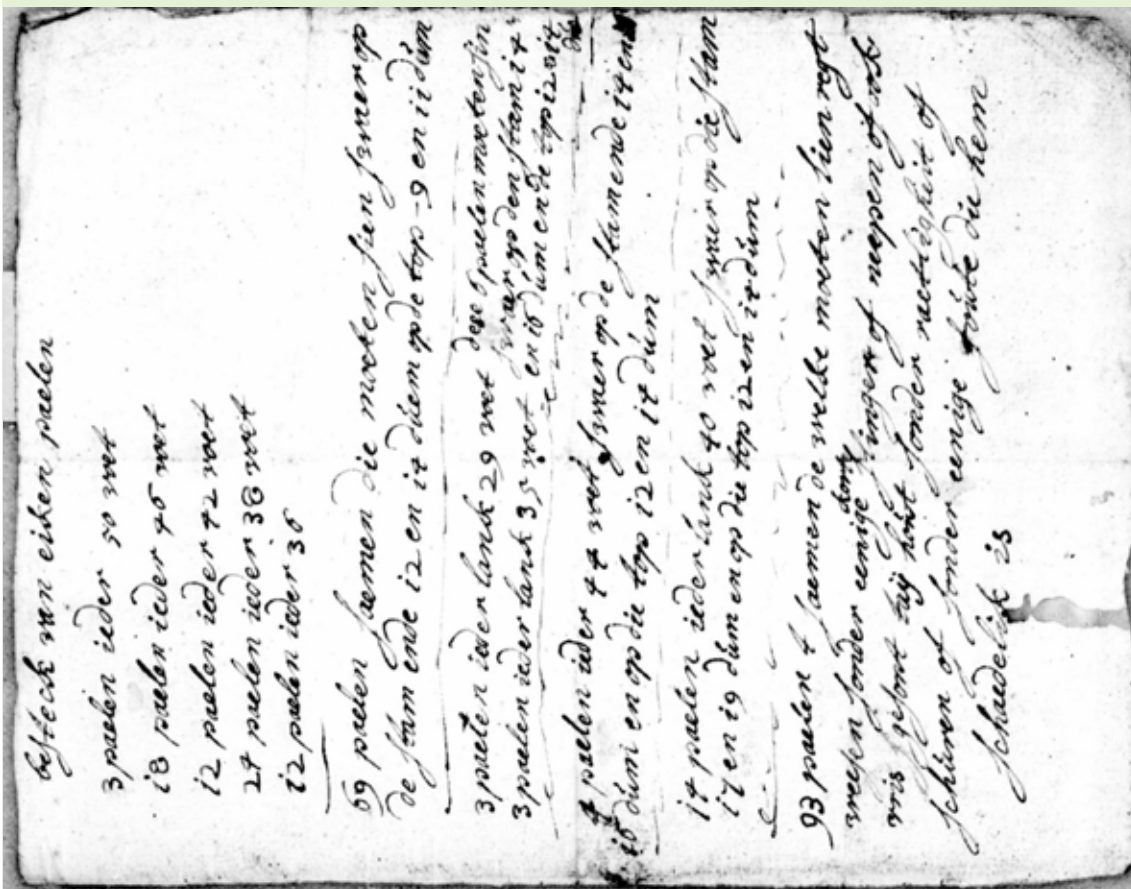 besteck van eiken paelen
3 paelen ieder 50 voet
i8 paelen ieder 46 voet
i2 paelen ieder 42 voet
24 paelen ieder 38 voet
i2 paelen ieder 36
69 paelen saemen die moeten sien swaer op
de stam ende i2 en i4 duem op de top 9 en ii dúm
3 paelen ieder lank 29 voet dese 6 paelen moeten sin
3 paelen ieder lank 35 voet swaer op den stam i4
en i6 dúm ende top i2 en i4
4 paelen ieder 44 voet swaer op de stam ende i4 en
i6 dúm en op die top i2 en i4 dúm
i4 paelen ieder lank 40 voet swaer op die stam
i7 en i9 dúm en op die top i2 en i4 dúm
93 paelen t saemen de welke moeten sien regt
weesen sonder eenige slingers of neepen of
vris gesont hout sonder of
schúren of sonder eenige foúte die hem
schaedelik is